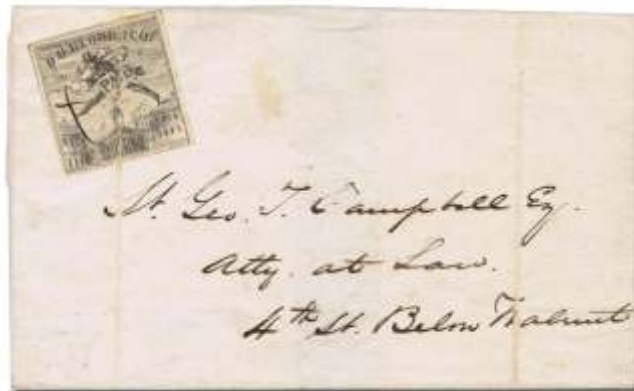 PAID
St. Geo. T. Campbell Esq.
Atty. at Law.
4th St. Below Walnut